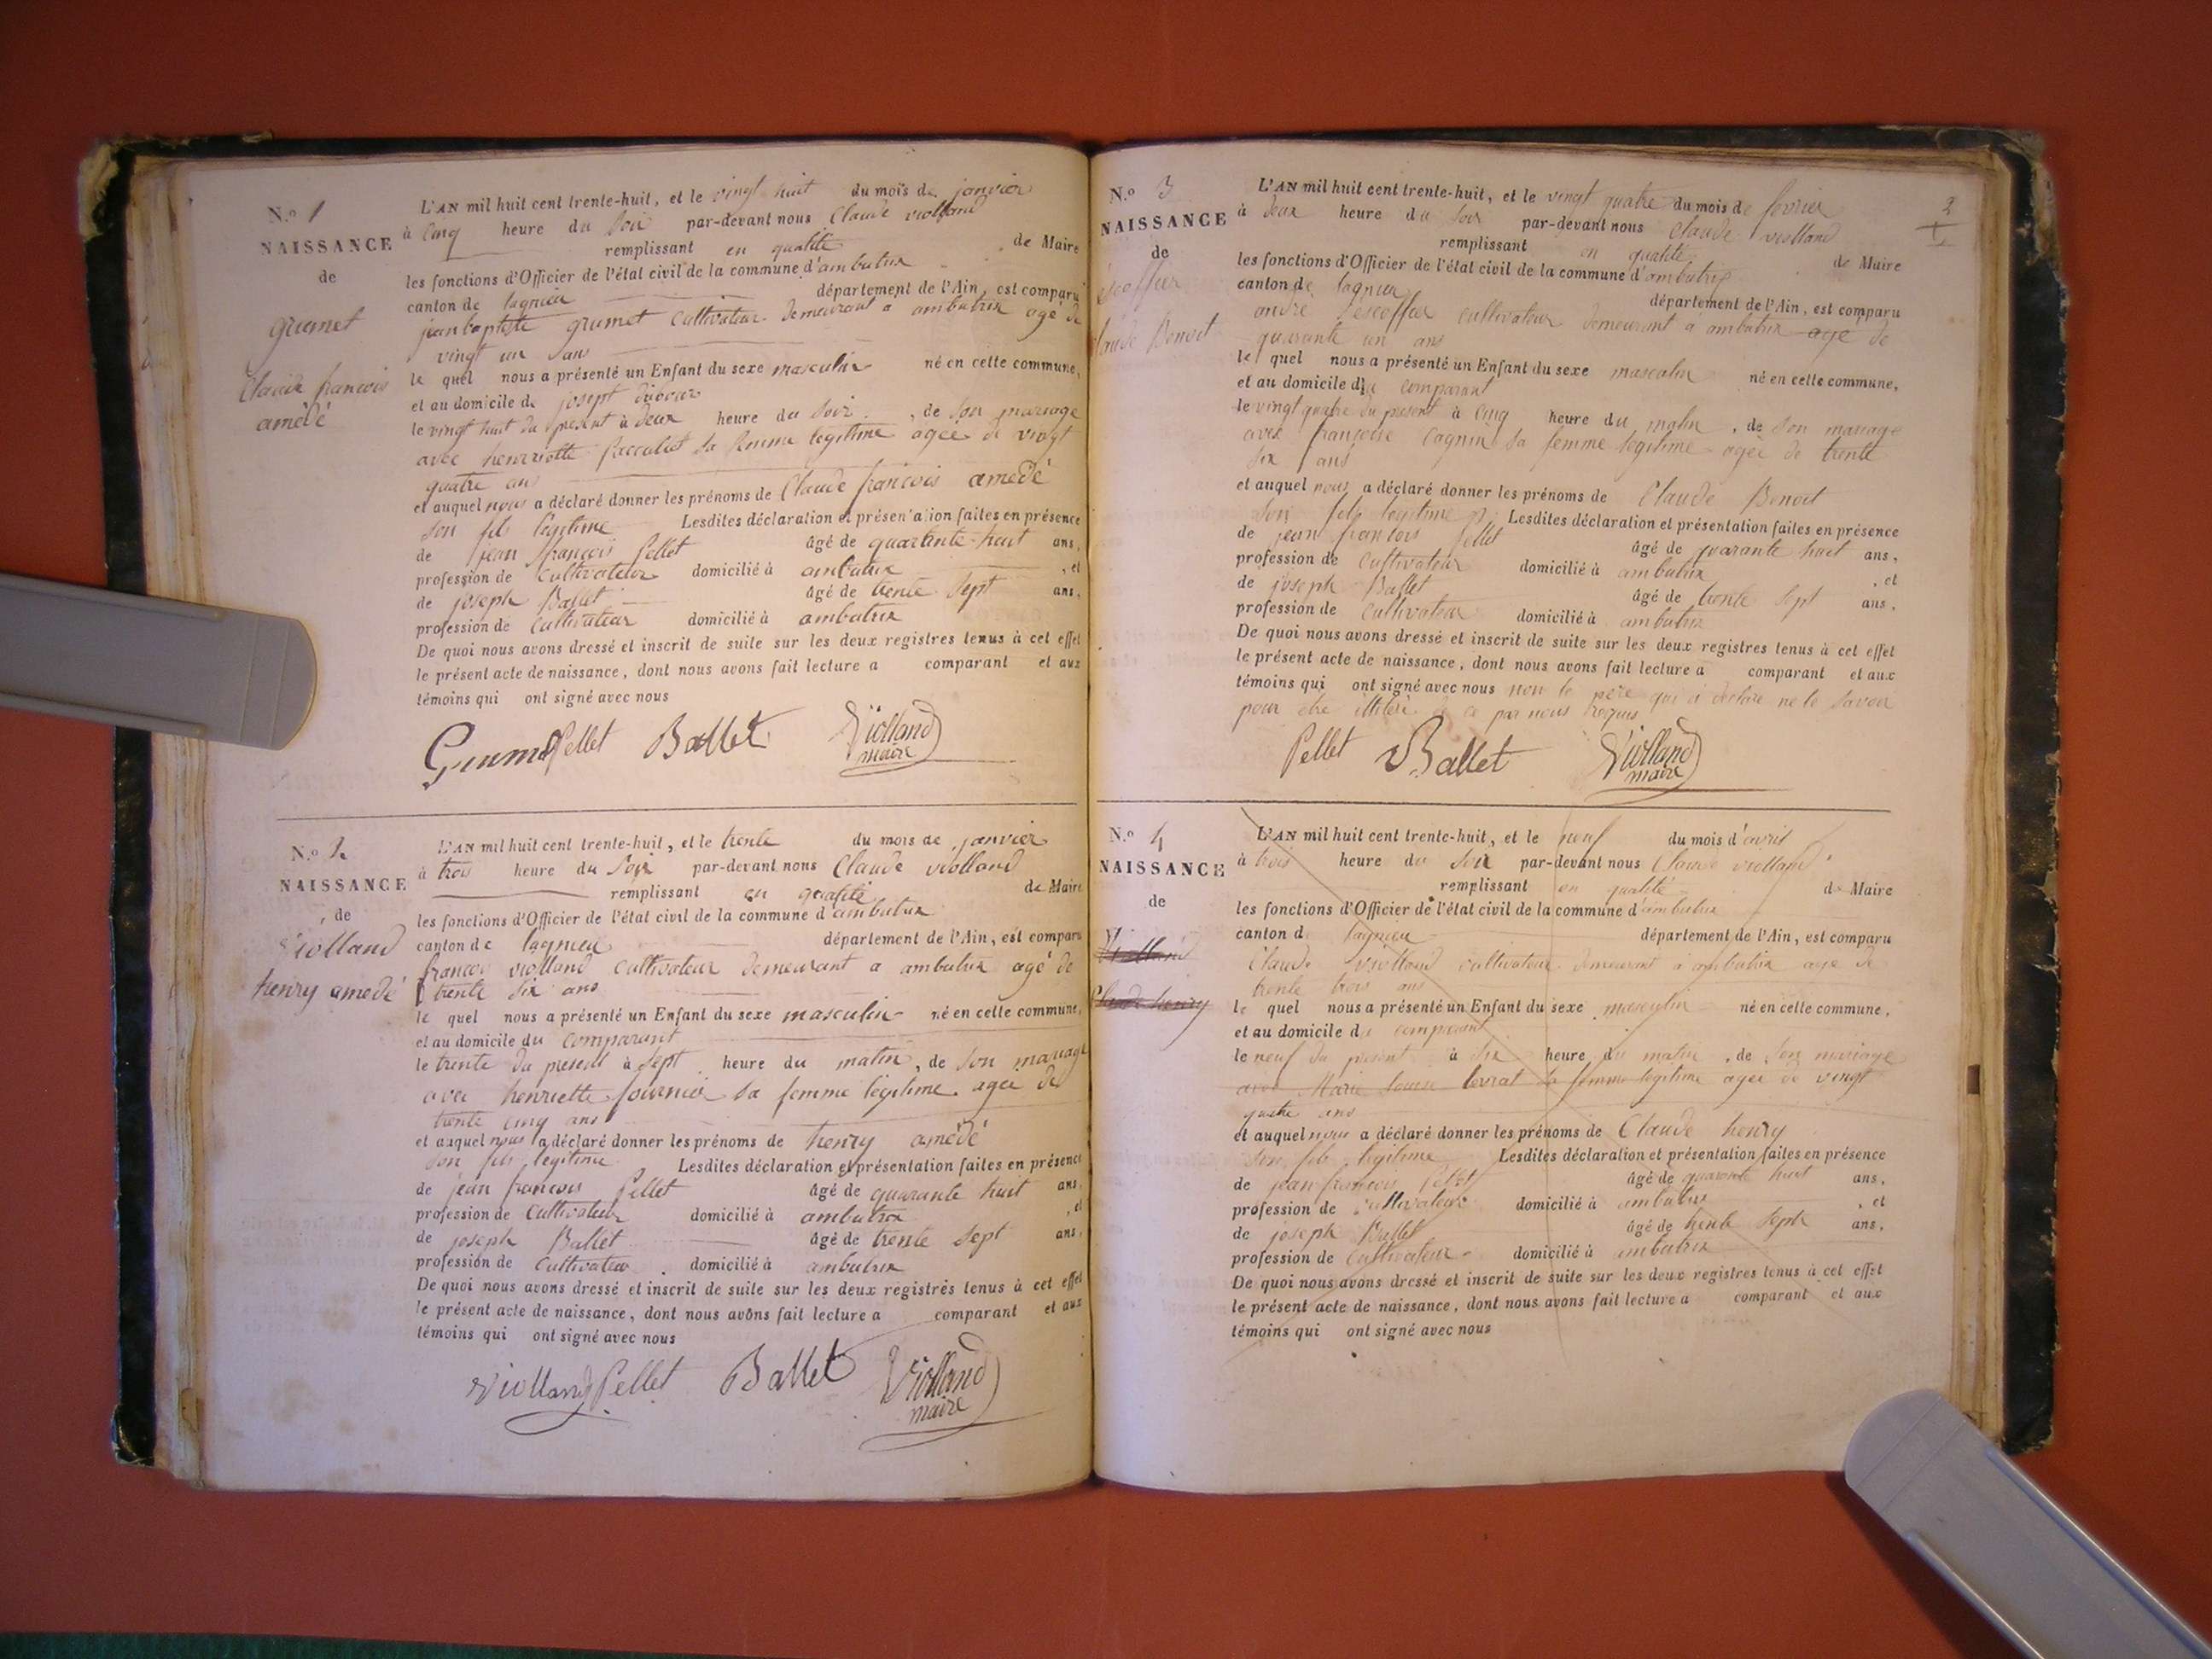 N.o 1
NAISSANCE
de
grumet
Claude francois
amédé
L'AN mil huit cent trente-huit, et le vingt huit du mois de janvier
à cinq heure du soir par-devant nous Claude violland
remplissant en qualité de Maire
les fonctions d'Officier de l'état civil de la commune d'ambutrix
canton de lagnieu département de l'Ain, est comparu
jean baptiste grumet cultivateur demeurant a ambutrix agé de
vingt un ans
le quel nous a présenté un Enfant du sexe masculin né en cette commune,
et au domicile de josept dubour
le vingt huit du présent à deux heure du soir, de son mariage
avec henriette sa femme légitime agée de vingt
quatre ans
et auquel nous a déclaré donner les prénoms de Claude francois amédé
son fils légitime Lesdites déclaration et présentation faites en présence
de jean françois Pellet âgé de quarante-huit ans,
profession de Cultivateur domicilié à ambutrix, et
de joseph Ballet âgé de trente sept ans,
profession de Cultivateur domicilié à ambutrix
De quoi nous avons dressé et inscrit de suite sur les deux registres tenus à cet effet
le présent acte de naissance, dont nous avons fait lecture a comparant et aux
témoins qui ont signé avec nous
Grumet Pellet Ballet Violland
maire
N.o 2
NAISSANCE
de
Violland
henry amedé
L'AN mil huit cent trente-huit, et le trente du mois de janvier
à trois heure du Soir par-devant nous Claude violland
remplissant en qualité de Maire
les fonctions d'Officier de l'état civil de la commune d'ambutrix
canton de lagnieu département de l'Ain, est comparu
francois violland cultivateur demeurant a ambutrix agé de
trente six ans
le quel nous a présenté un Enfant du sexe masculin né en cette commune,
et au domicile du comparant
le trente du present à sept heure du matin, de son mariage
avec henriette fournier sa femme légitime agee de
trente cinq ans
et auquel nous a déclaré donner les prénoms de henry amédé
son fils legitime Lesdites déclaration et présentation faites en présence
de jean francois Pellet âgé de quarante huit ans,
profession de Cultivateur domicilié à ambutrix, et
de joseph Ballet âgé de trente sept ans,
profession de Cultivateur domicilié à ambutrix
De quoi nous avons dressé et inscrit de suite sur les deux registres tenus à cet effet
le présent acte de naissance, dont nous avons fait lecture a comparant et aux
témoins qui ont signé avec nous
Violland Pellet Ballet Violland
maire
2
N.o 3
NAISSANCE
de
escoffier
laude Benoit
L'AN mil huit cent trente-huit, et le vingt quatre du mois de fevrier
à deux heure du soir par-devant nous claude violland
remplissant en qualité de Maire
les fonctions d'Officier de l'état civil de la commune d'ambutrix
canton de lagnieu département de l'Ain, est comparu
andré lescoffier cultivateur demeurant a ambutrix agé de
quarante un ans
le quel nous a présenté un Enfant du sexe masculin né en cette commune,
et au domicile du comparant
le vingt quatre du present à cinq heure du matin, de son mariage
avec françoise cagnin sa femme legitime agée de trente
six ans
et auquel nous a déclaré donner les prénoms de Claude Benoit
son fils legitime Lesdites déclaration et présentation faites en présence
de jean francois Pellet âgé de quarante huit ans,
profession de Cultivateur domicilié à ambutrix, et
de joseph Ballet âgé de trente sept ans,
profession de Cultivateur domicilié à ambutrix
De quoi nous avons dressé et inscrit de suite sur les deux registres tenus à cet effet
le présent acte de naissance, dont nous avons fait lecture a comparant et aux
témoins qui ont signé avec nous non le père qui a declaré ne le savoir
pour etre illiteré de ce par nous requis
Pellet Ballet Violland
maire
N.o 4
NAISSANCE
de
Violland
Claude henry
L'AN mil huit cent trente-huit, et le neuf du mois d'avril
à trois heure du soir par-devant nous Claude violland
remplissant en qualité de Maire
les fonctions d'Officier de l'état civil de la commune d'ambutrix
canton d lagnieu département de l'Ain, est comparu
Claude violland cultivateur demeurant a ambutrix age de
trente trois ans
le quel nous a présenté un Enfant du sexe masculin né en cette commune,
et au domicile du comparant
le neuf du present à six heure du matin, de son mariage
avec Marie Louise levrat sa femme legitime agée de vingt
quatre ans
et auquel nous a déclaré donner les prénoms de Claude henry
son fils legitime Lesdites déclaration et présentation faites en présence
de jean francois Pellet âgé de quarante huit ans,
profession de Cultivateur domicilié à ambutrix, et
de joseph Ballet âgé de trente sept ans,
profession de Cultivateur domicilié à ambutrix
De quoi nous avons dressé et inscrit de suite sur les deux registres tenus à cet effet
le présent acte de naissance, dont nous avons fait lecture a comparant et aux
témoins qui ont signé avec nous